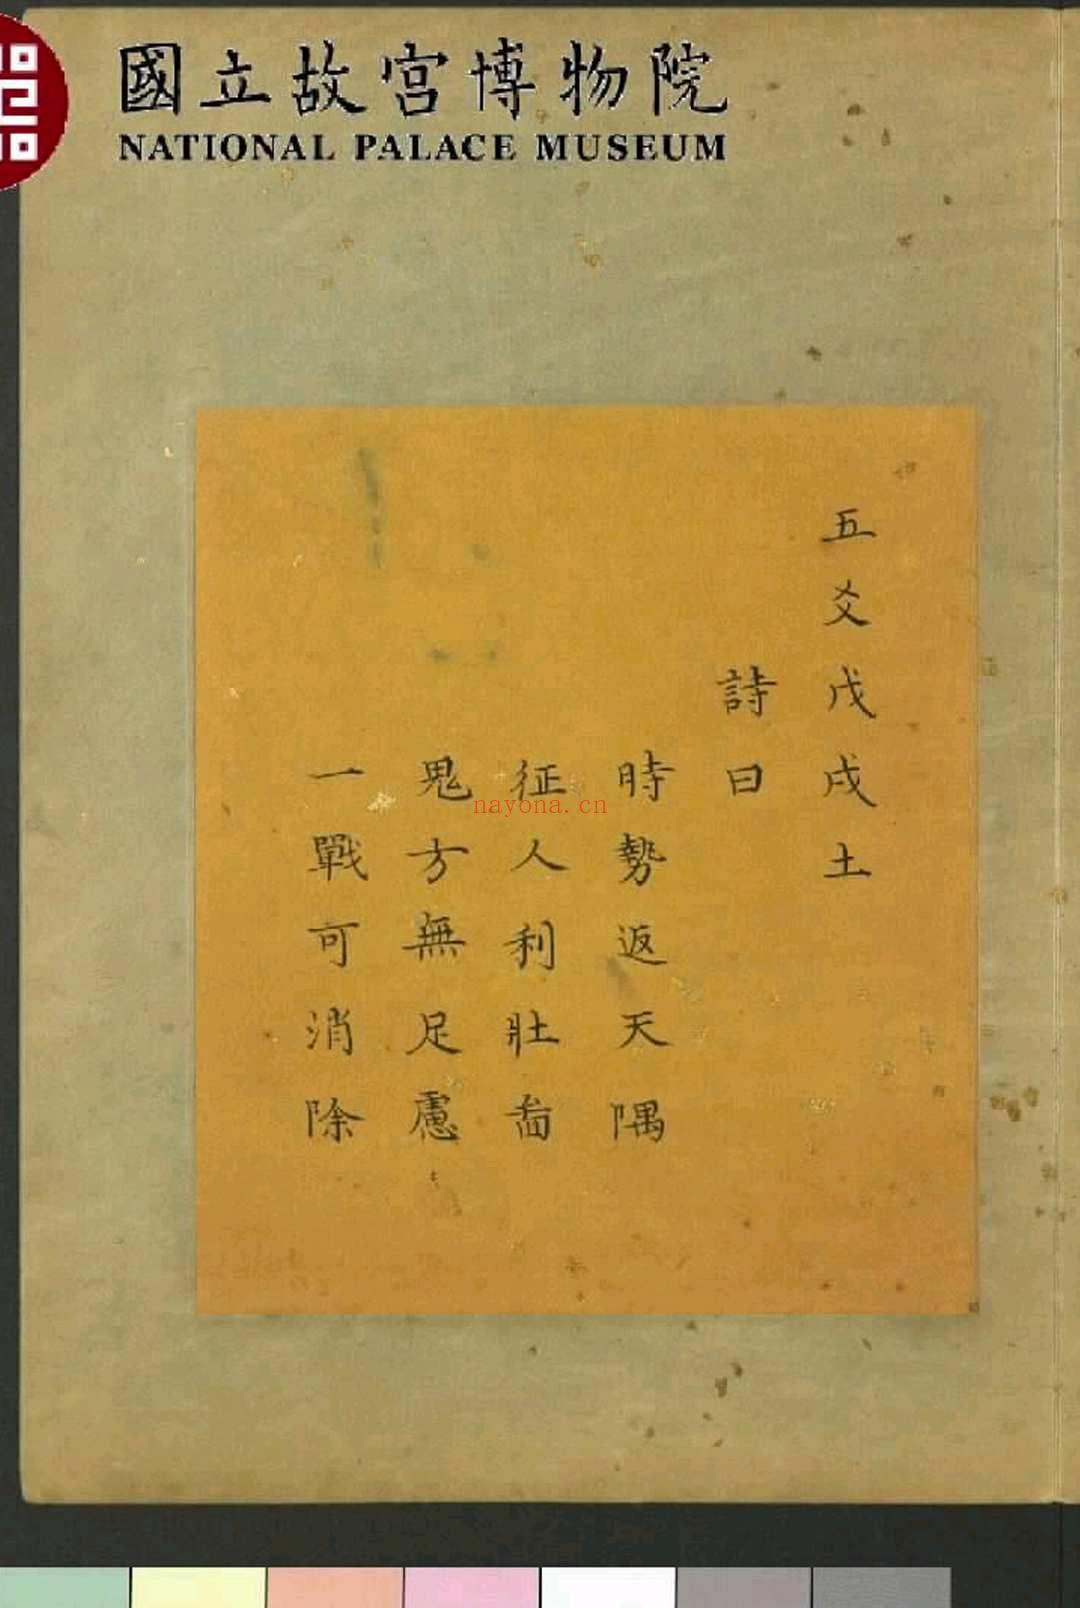 國立故宮博物院
NATIONAL PALACE MUSEUM
五爻戊戌土
詩曰
時勢返天隅
征人利壯啚
鬼方無足慮
一戰可消除
nayona.cn